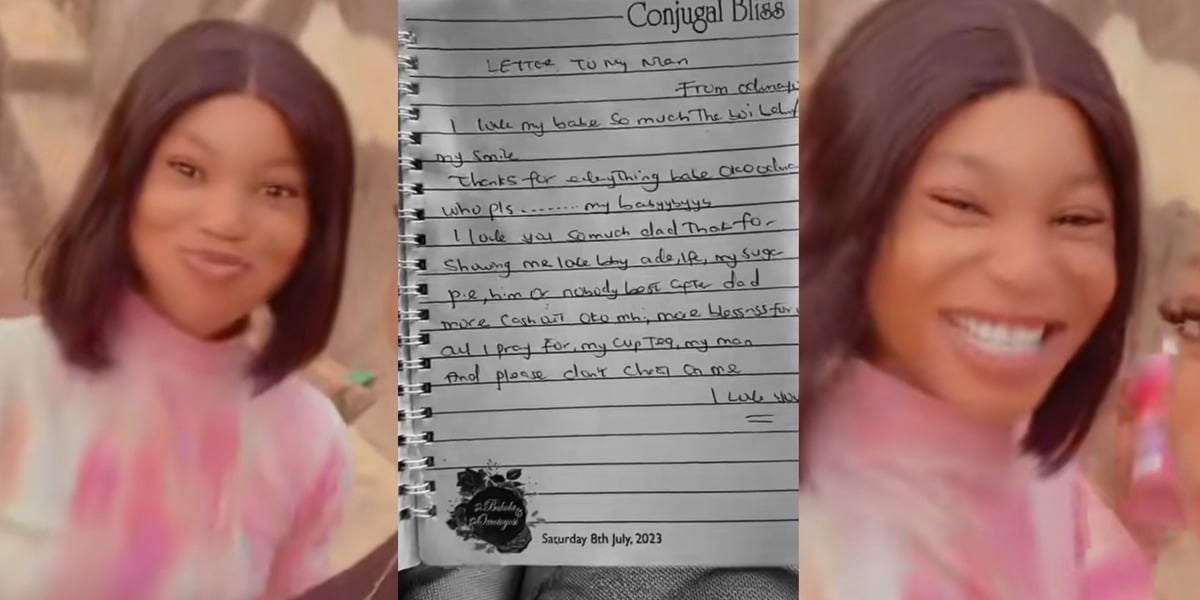 Conjugal Bliss
LETTER TO My Man
From
I love my babe so much The
my smile
Thanks for everything babe
who pls ........ my basyybyys
I love you so much dad That fo-
Showing me love bby ade, ife, my suga-
pie, him or nobody best after dad
more cash out oko mhi, more blessings for
all I pray for, my cup Tea, my man
And please don't cheat on me
I love you
Saturday 8th July, 2023